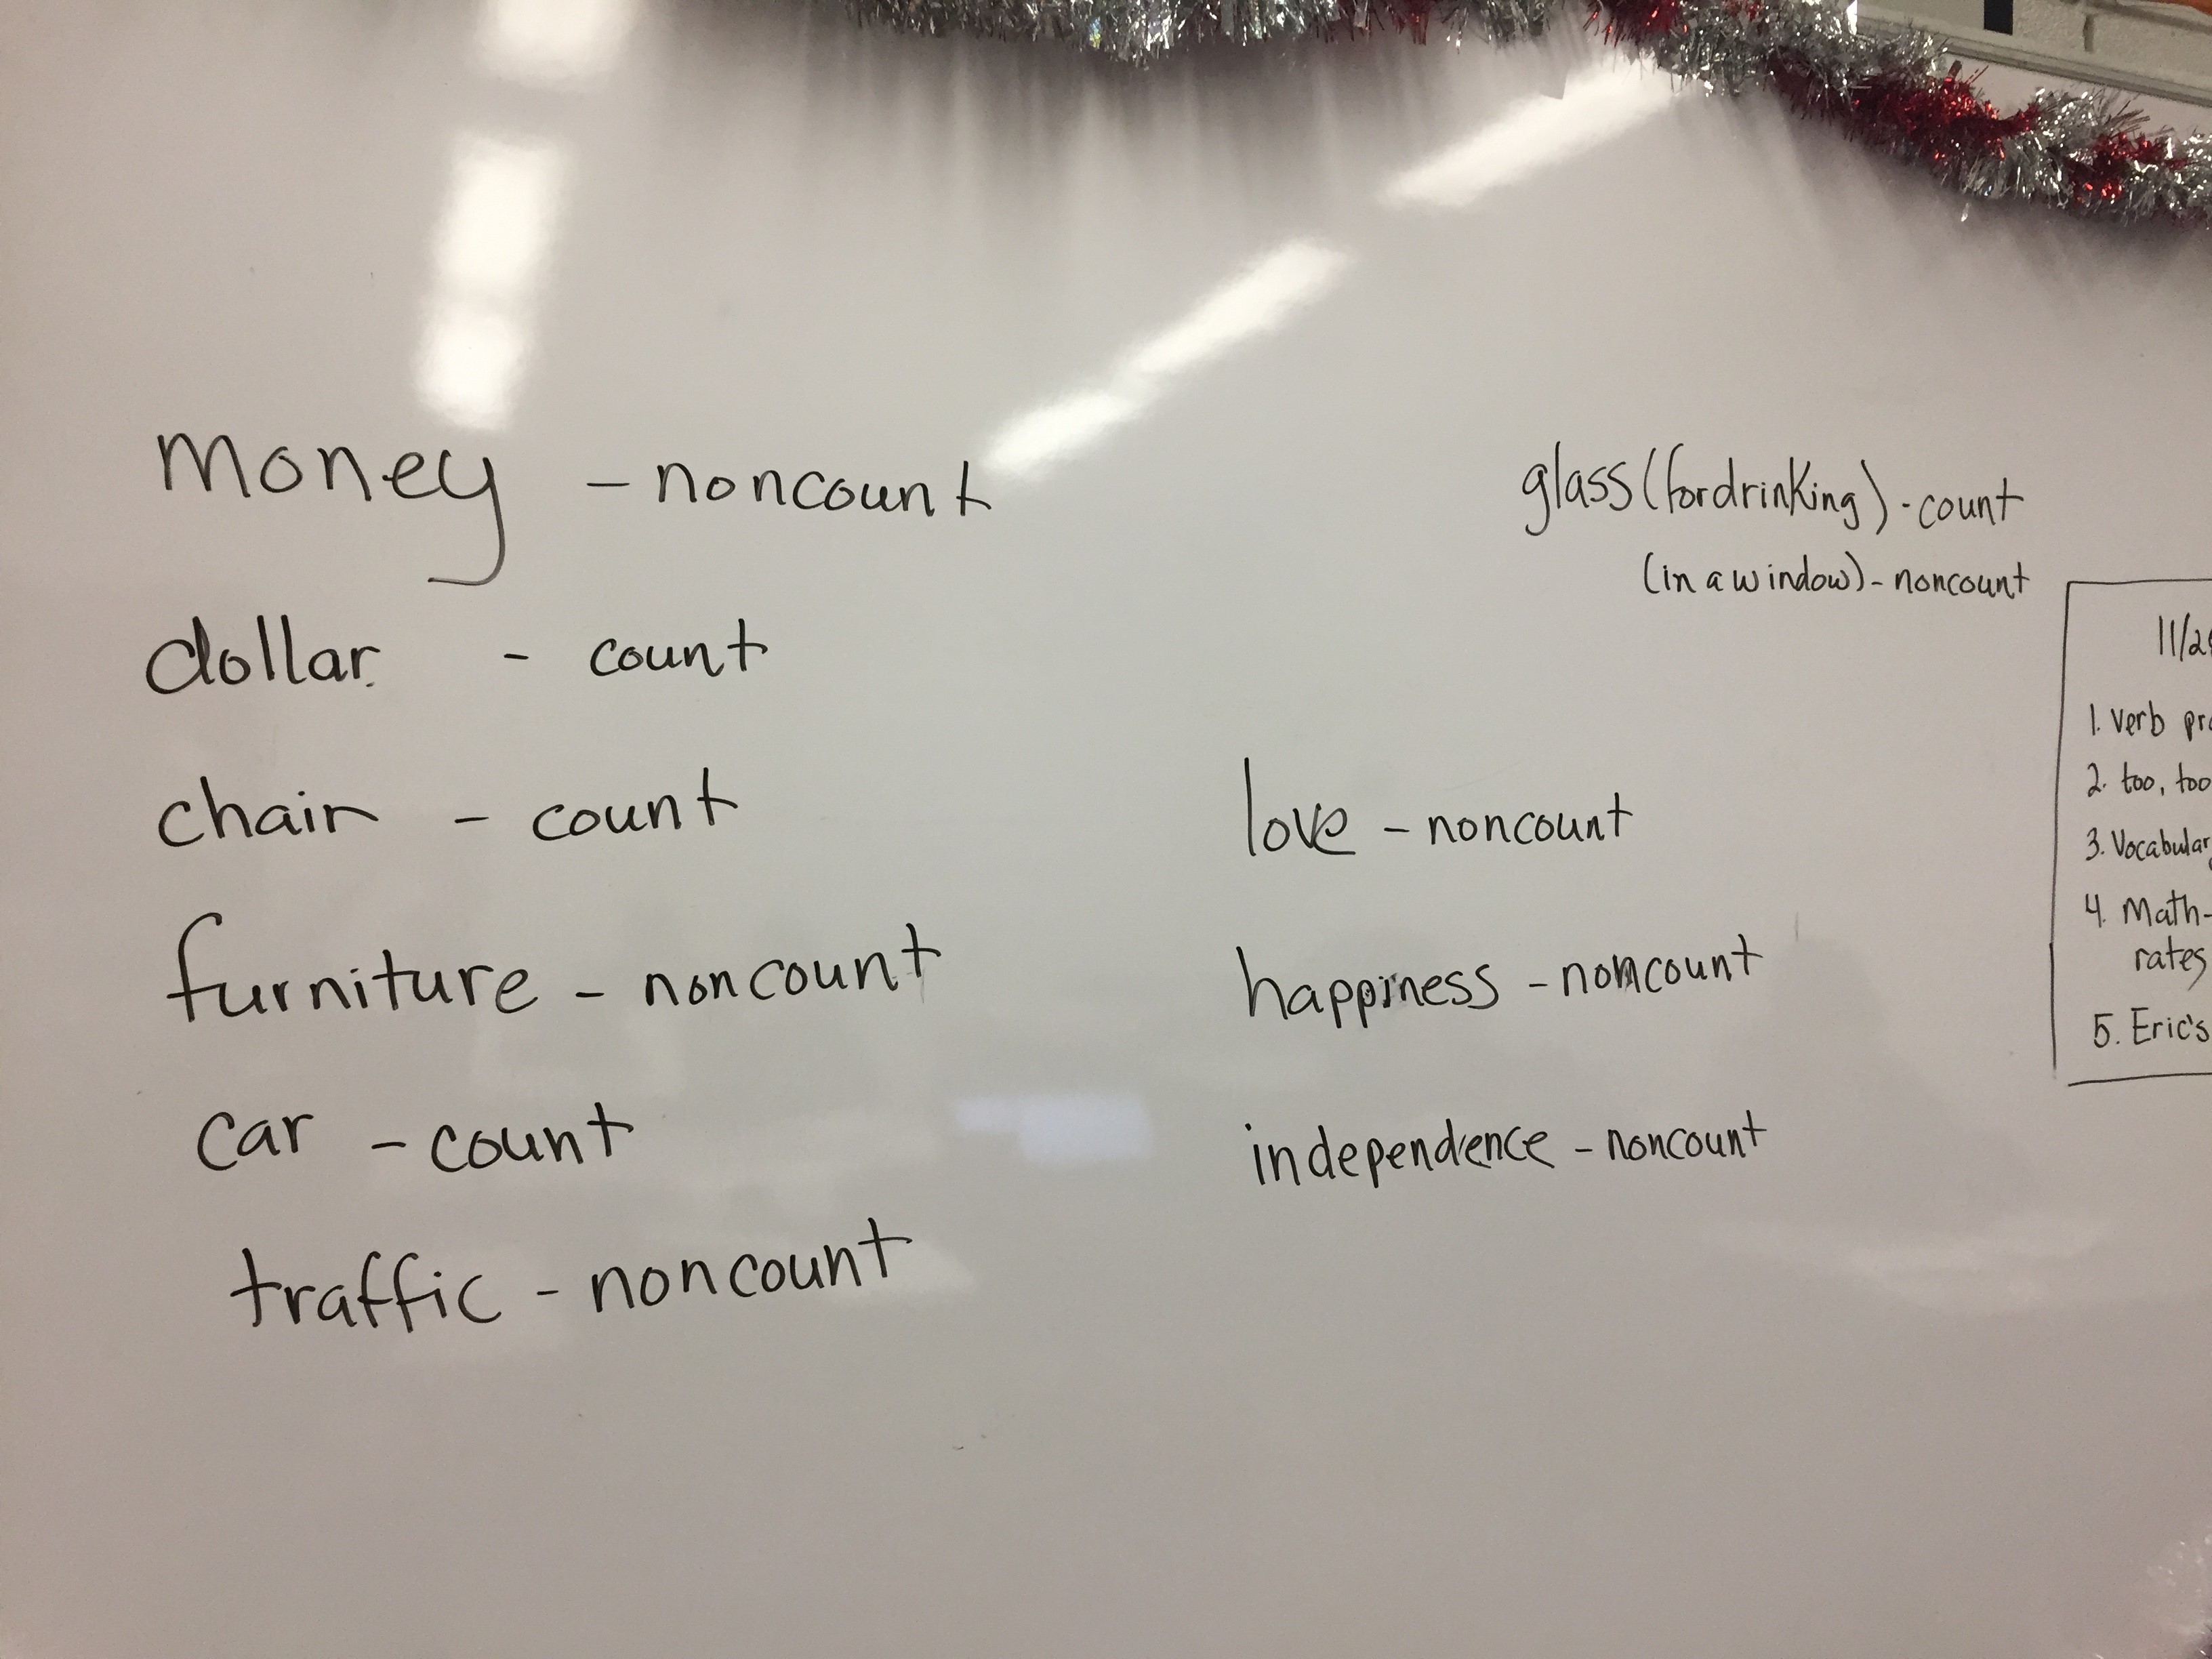 money - noncount
dollar - count
chair - count
furniture - noncount
car - count
traffic - noncount
glass (for drinking) - count
(in a window) - noncount
love - noncount
happiness - noncount
independence - noncount
11/2
1. verb
2. too, too
3. Vocabular
4. Math-
rates
5. Eric's